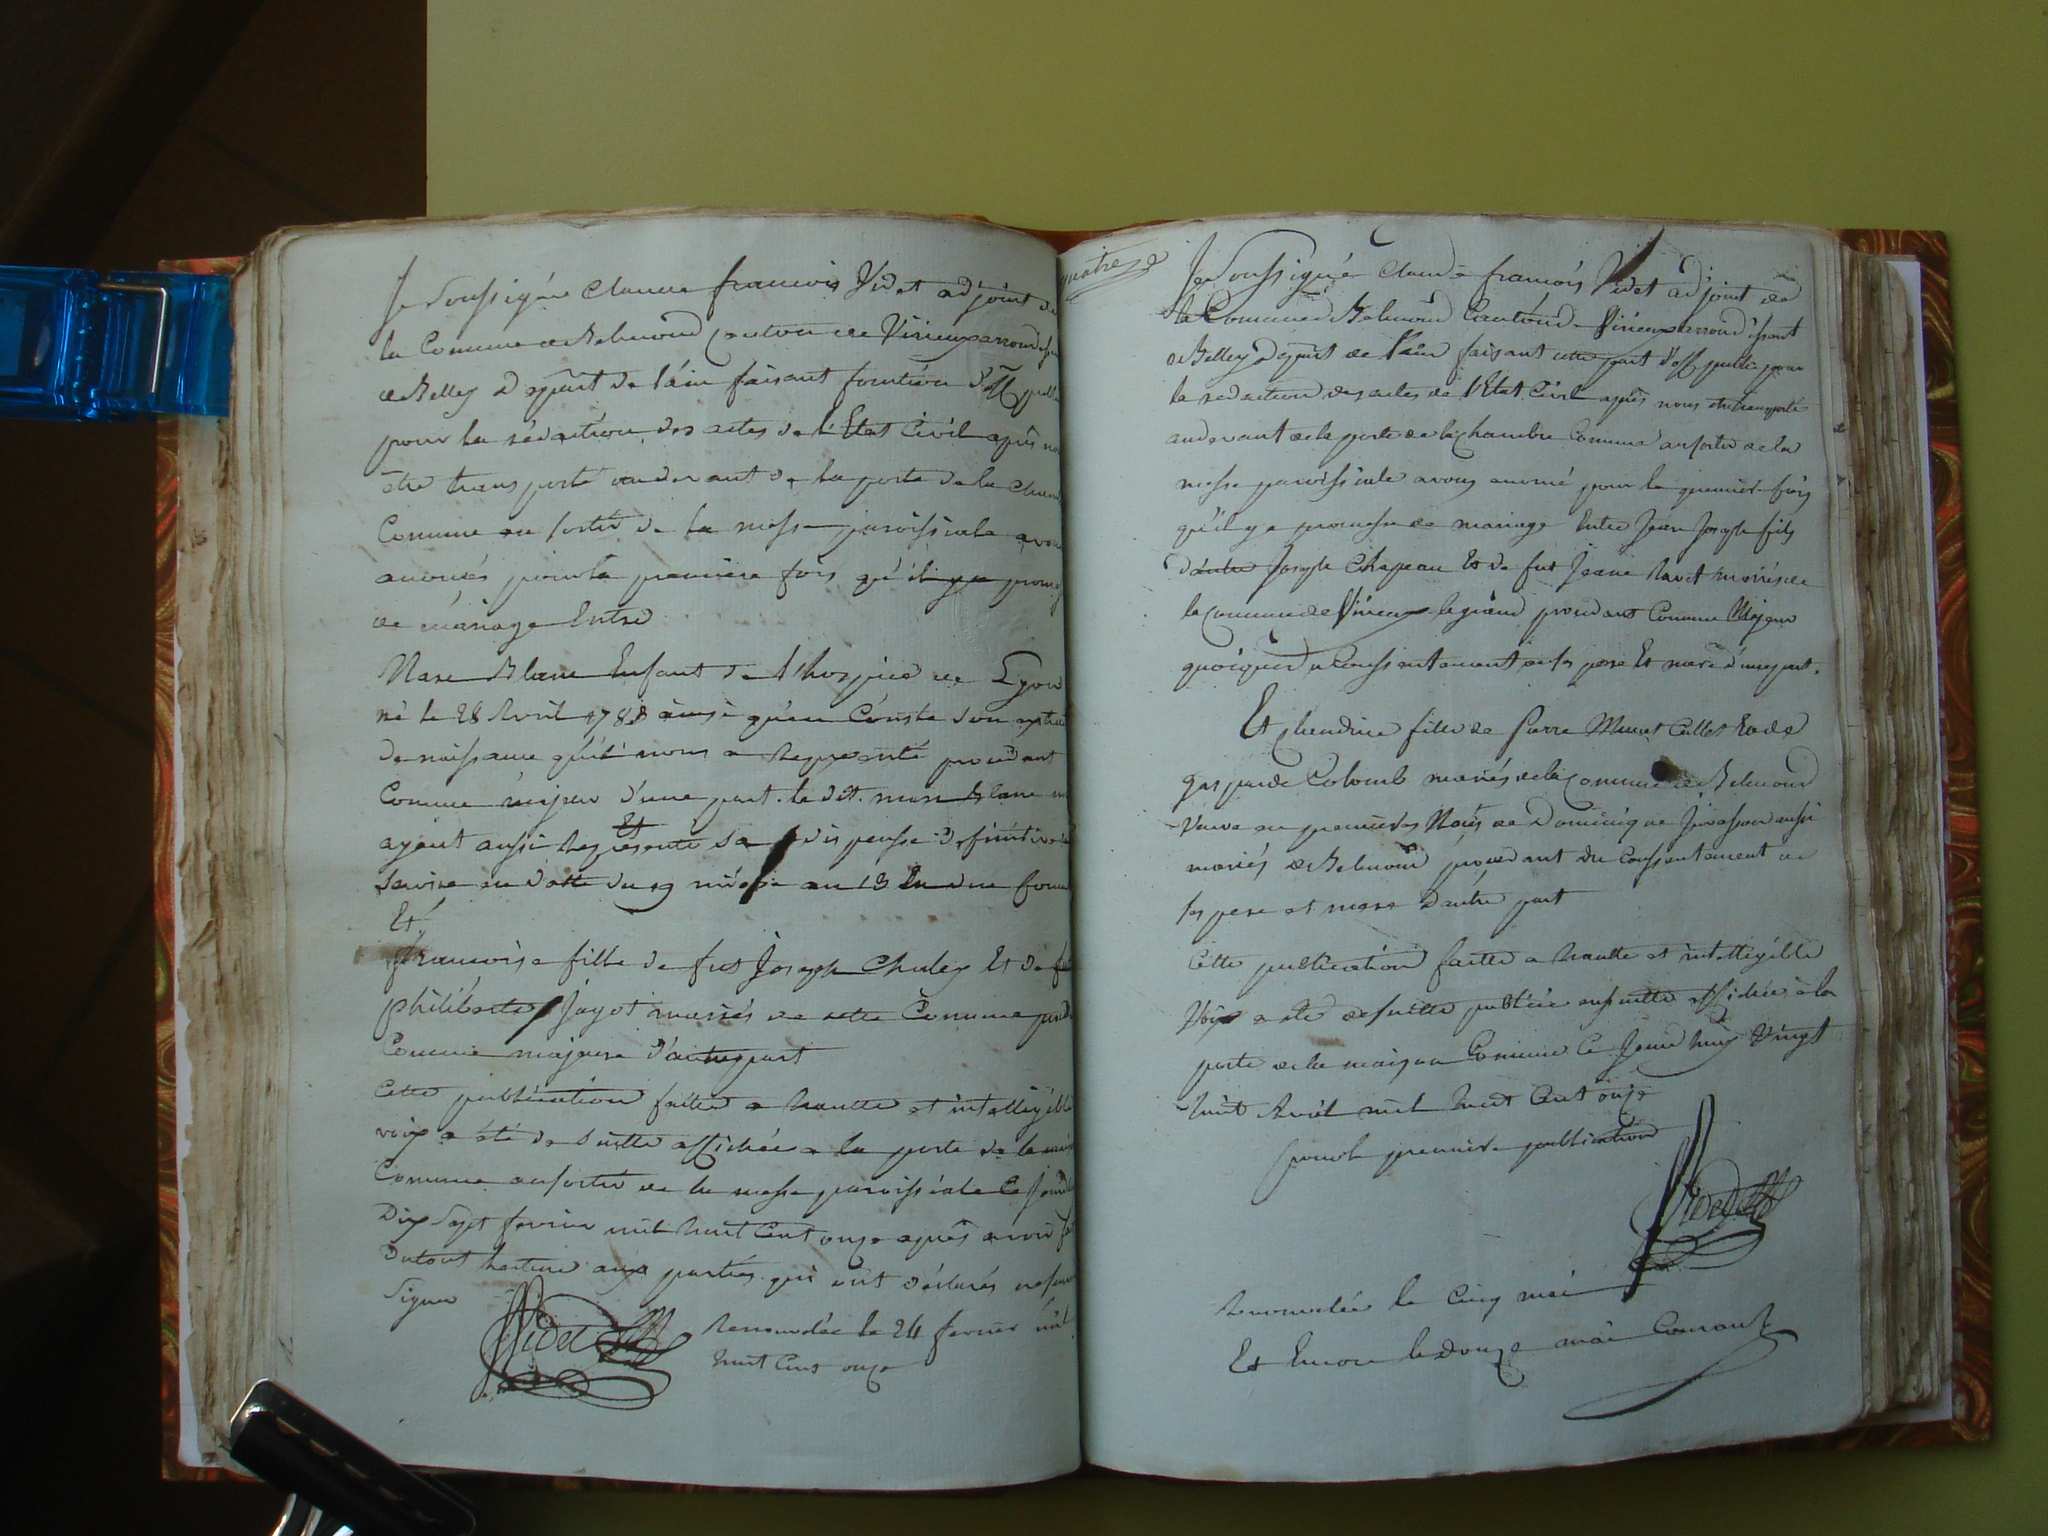 Je soussigné Claude francois Videt adjoint de
la Commune de Belmond canton de Virieux arrond
de Belley Depart de l'ain faisant fonction d'off publ
pour la rédaction des actes de l'Etat Civil après n
être transporté au devant de la porte de la Cham
Commune au sortir de la messe paroissiale avo
anonés pour la première fois qu'il y a prome
de mariage Entre
Marc Blanc Enfant de l'hospice de Lyon
né le 28 Avril 1788 ainsi qu'en Conste son extrai
de naissance qu'il nous a Représenté procedant
Comme majeur d'une part. le dit marc Blanc
ayant aussi Représenté sa dispense définitive de
service en datte du 19 an 13 En due forme
Et
francoise fille de fut Joseph Chuley Et de fut
philiberte Jayot mariés de cette Commune
Comme majeure d'autre part
Cette publication faitte a hautte et intelligible
voix a été de suitte affichée a la porte de la mais
Commune au sortir de la messe paroissiale Ce Jourd
Dix Sept fevrier mil huit Cent onze après avoir f
du tout lecture aux parties qui ont déclarés ne savoir
signer
Videt
Renouvelée le 24 fevrier mil
huit Cent onze
quatre
Je soussigné Claude francois Videt adjoint de
la Commune de Belmond Canton de Virieux arrondissant
de Belley Depart de l'ain faisant cette part d'off public pour
la redaction des actes de l'Etat Civil après nous etre transporté
au devant de la porte de la Chambre Commune au sortir de la
messe paroissiale avons anoncé pour la premiere fois
qu'il y a promesse de mariage Entre Jean Joseph fils
d'autre Joseph Chapeau Et de fut Jeane Ravet mariés de
la Commune de Virieux le grand procedant Comme Majeur
quoique du Consentement de ses pere Et mere d'une part.
Et fille de Pierre Mucet Caillet Et de
gasparde Colomb mariés de la Commune de Belmond
veuve en premieres Noces de Dominique aussi
mariés de Belmond procedant du Consentement de
ses pere et mere D'autre part
Cette publication faitte a hautte et intelligible
Voix a été de suitte publiée ensuitte affichée à la
porte de la maison Commune Ce Jourd'huy Vingt
huit Avril mil huit Cent onze
pour la premiere publication
Videt
Renouvelée le Cinq mai
Et Encore le Douze mai Courant